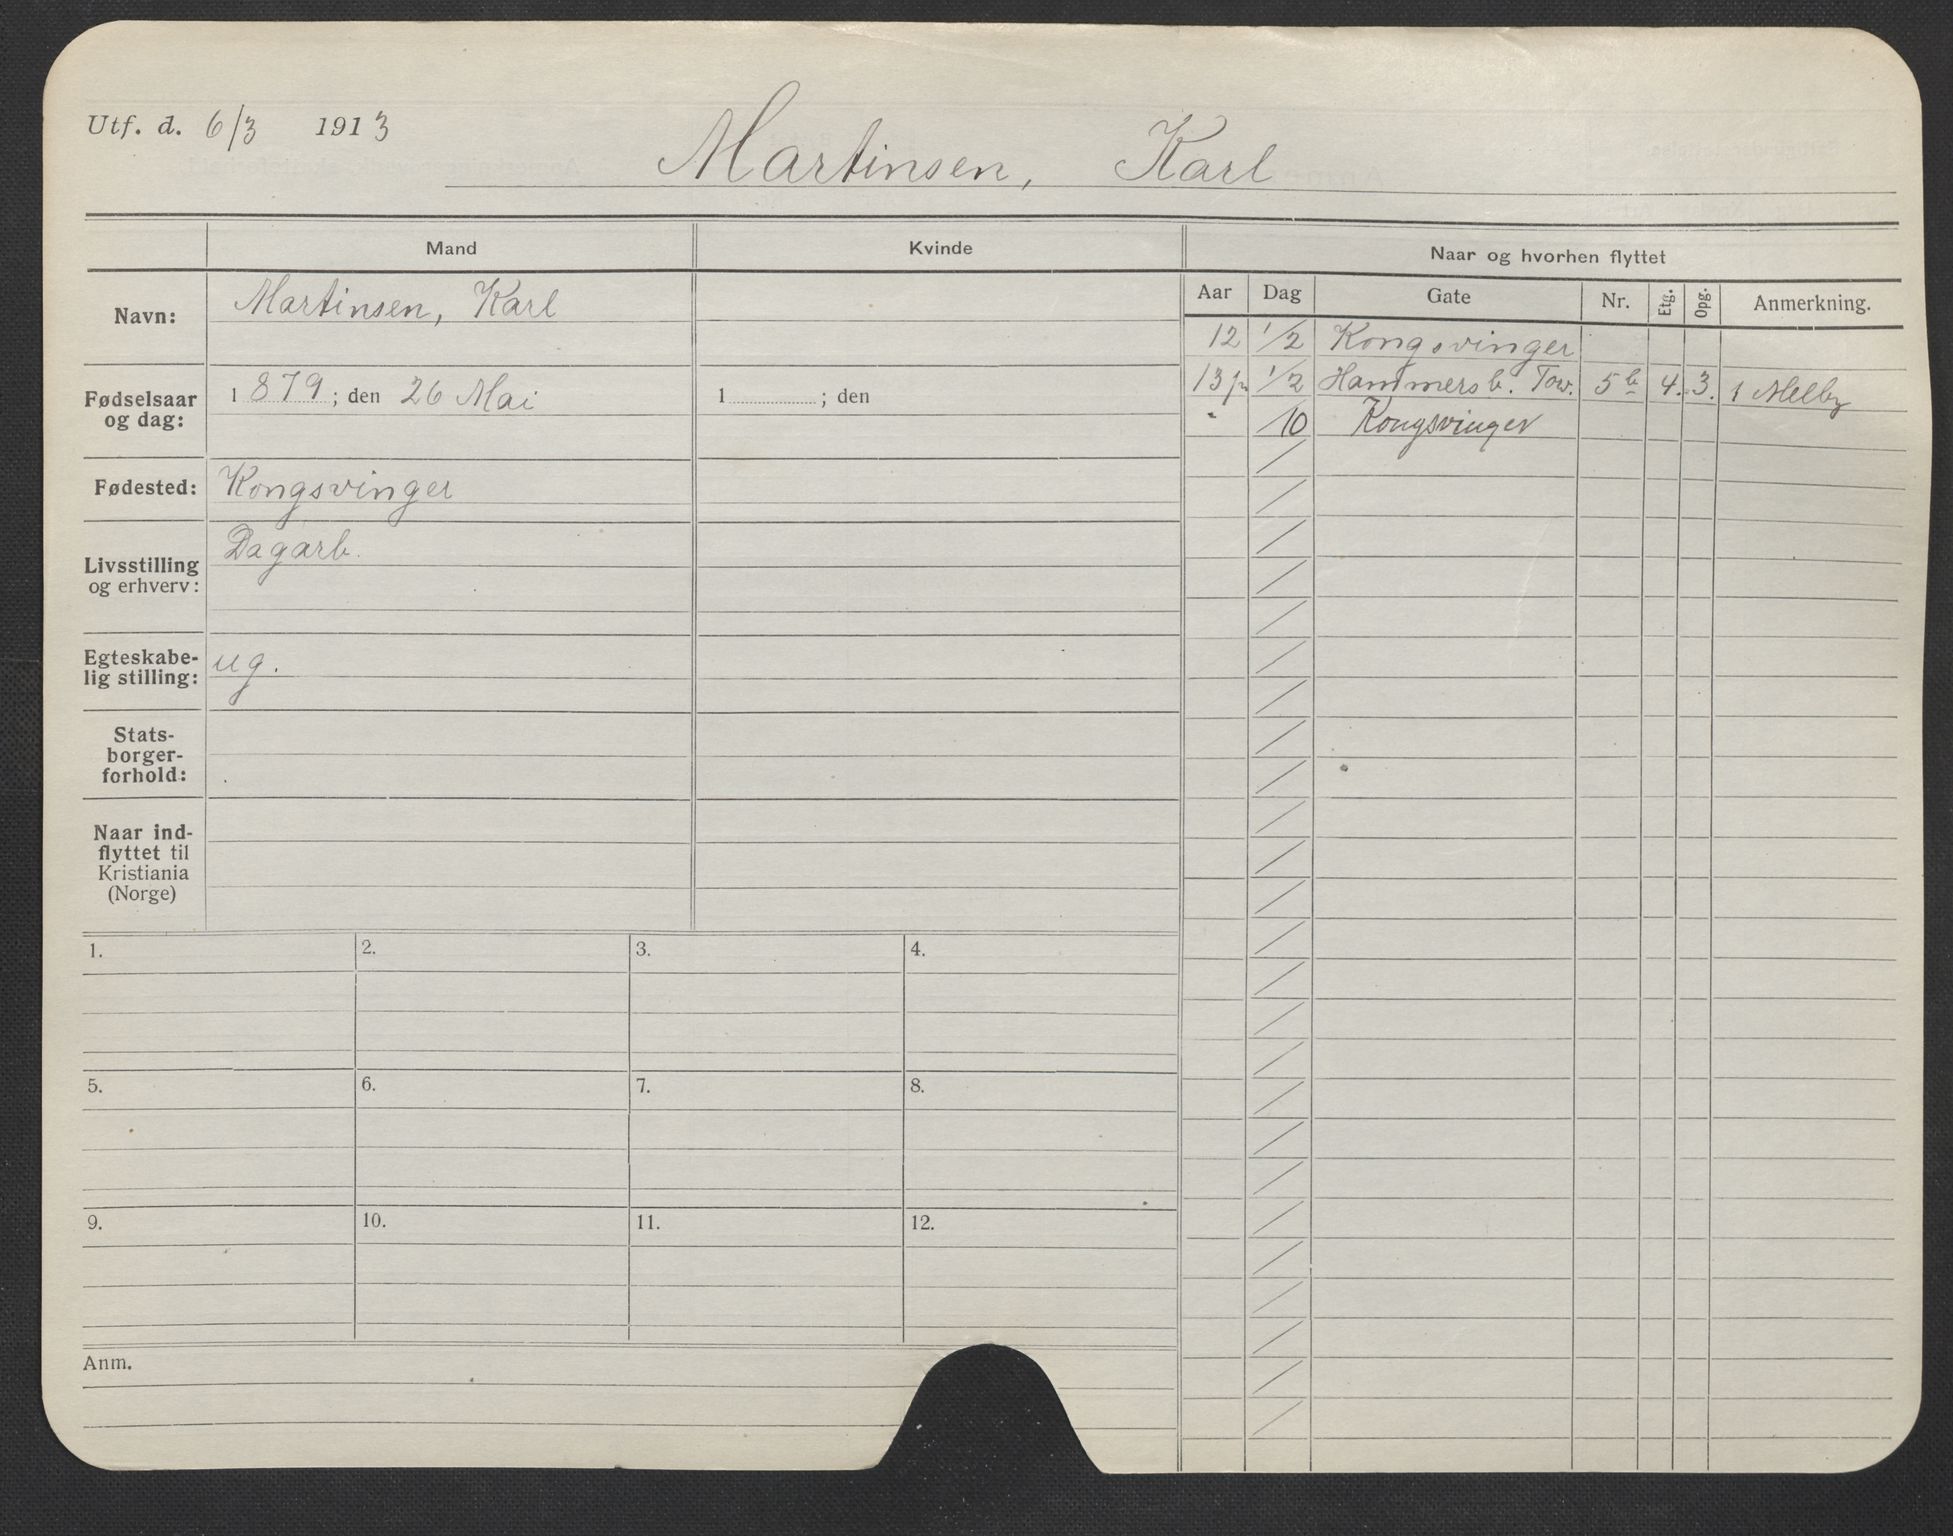 Utf. d. 6/3 1913
Martinsen, Karl
Mand Kvinde Naar og hvorhen flyttet
Aar Dag Gate Nr. Etg. Opg. Anmerkning.
Navn: Martinsen, Karl
Fødselsaar og dag: 1879; den 26 Mai 1 ; den
Fødested: Kongsvinger
Livsstilling og erhverv: Dagarb.
Egteskabe-
lig stilling: ug.
Stats-
borger-
forhold:
Naar ind-
flyttet til
Kristiania
(Norge)
12 1/2 Kongsvinger
13 1/2 Hammersb. Tov. 5b 4. 3. Melby
" /10 Kongsvinger
1. 2. 3. 4.
5. 6. 7. 8.
9. 10. 11. 12.
Anm.